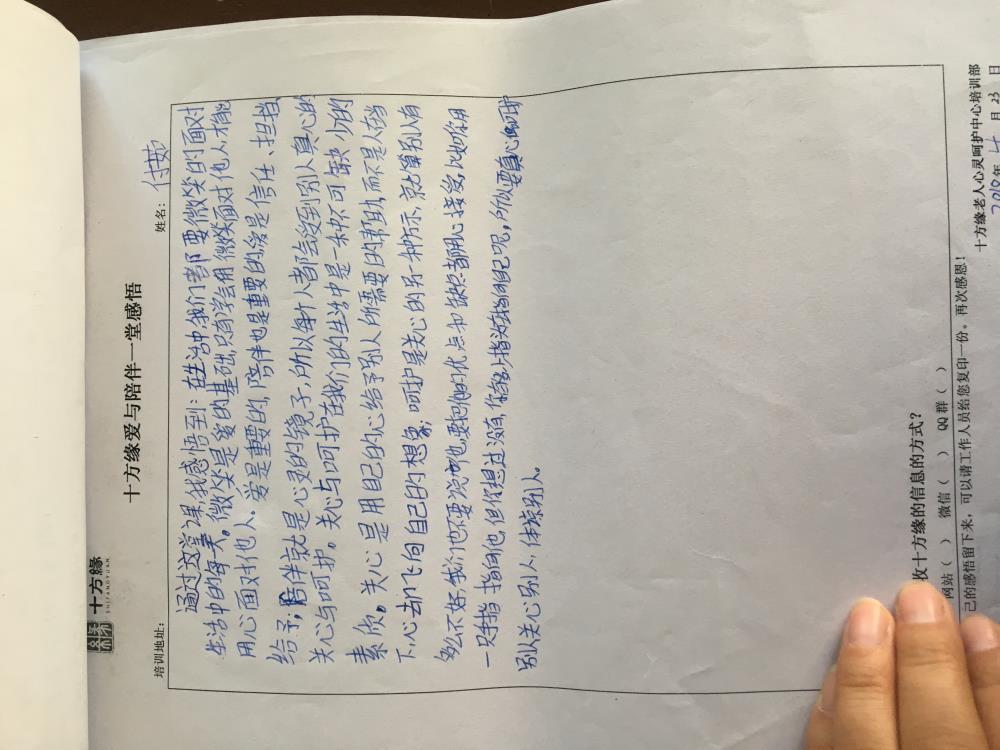 十方缘
SHIFANGYUAN
十方缘爱与陪伴一堂感悟
培训地址: 姓名: 付茹
通过这堂课,我感悟到:在生活中,我们都要微笑的面对
生活中的每天。微笑是爱的基础,只有学会用微笑面对他人,才能
用心面对他人。爱是重要的,陪伴也是重要的,爱是信任、担当、
给予;陪伴就是心灵的镜子,所以每个人都会受到别人真心的
关心与呵护。关心与呵护在我们的生活中是一种不可缺少的
素质。关心是用自己的心给予别人所需要的帮助,而不是人在当
下,心去却飞向自己的想象;呵护是关心的另一种方示,就算别人有
多么不好,我们也不要说他也要把他的优点和缺点都用心接受,比如你用
一只手指指向他,但你想过没有,你的上指头指向自己呢,所以要真心呵护
别人关心别人,体谅别人。
收十方缘的信息的方式?
网站( ) 微信( ) QQ群( )
己的感悟留下来,可以请工作人员给您复印一份。再次感恩!
十方缘老人心灵呵护中心培训部
年 月 23 日